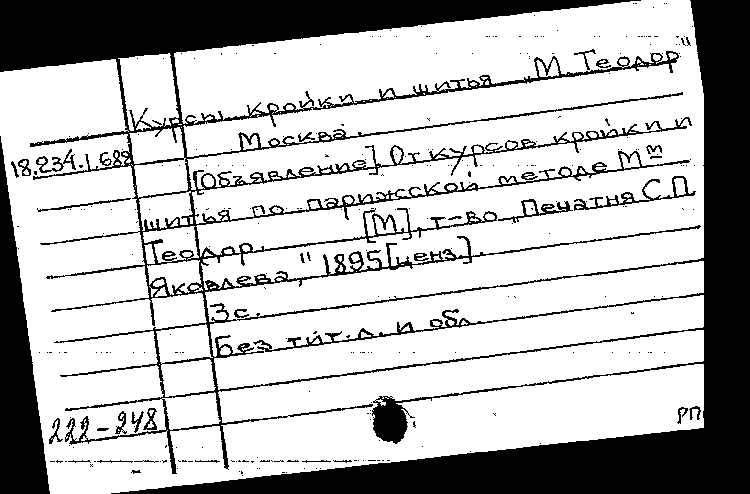 Курсы кройки и шитья „М. Теодор"
Москва.
18.234.1.688
[Объявление]. От курсов кройки и
шитья по парижской методе Мm
Теодор. [М.], т-во „Печатня С.П.
Яковлева," 1895 [ценз.].
3 с.
Без тит. л. и обл.
222-248
РП